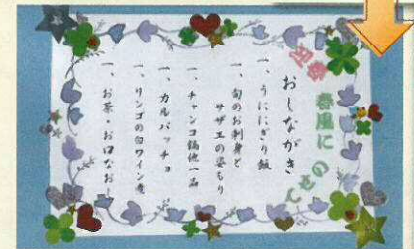 春風に
のせて
おしながき
一、うににぎり飯
一、旬のお刺身と
サザエの姿もり
一、チャンコ鍋他一品
一、カルパッチョ
一、リンゴの白ワイン煮
一、お茶・お口なおし